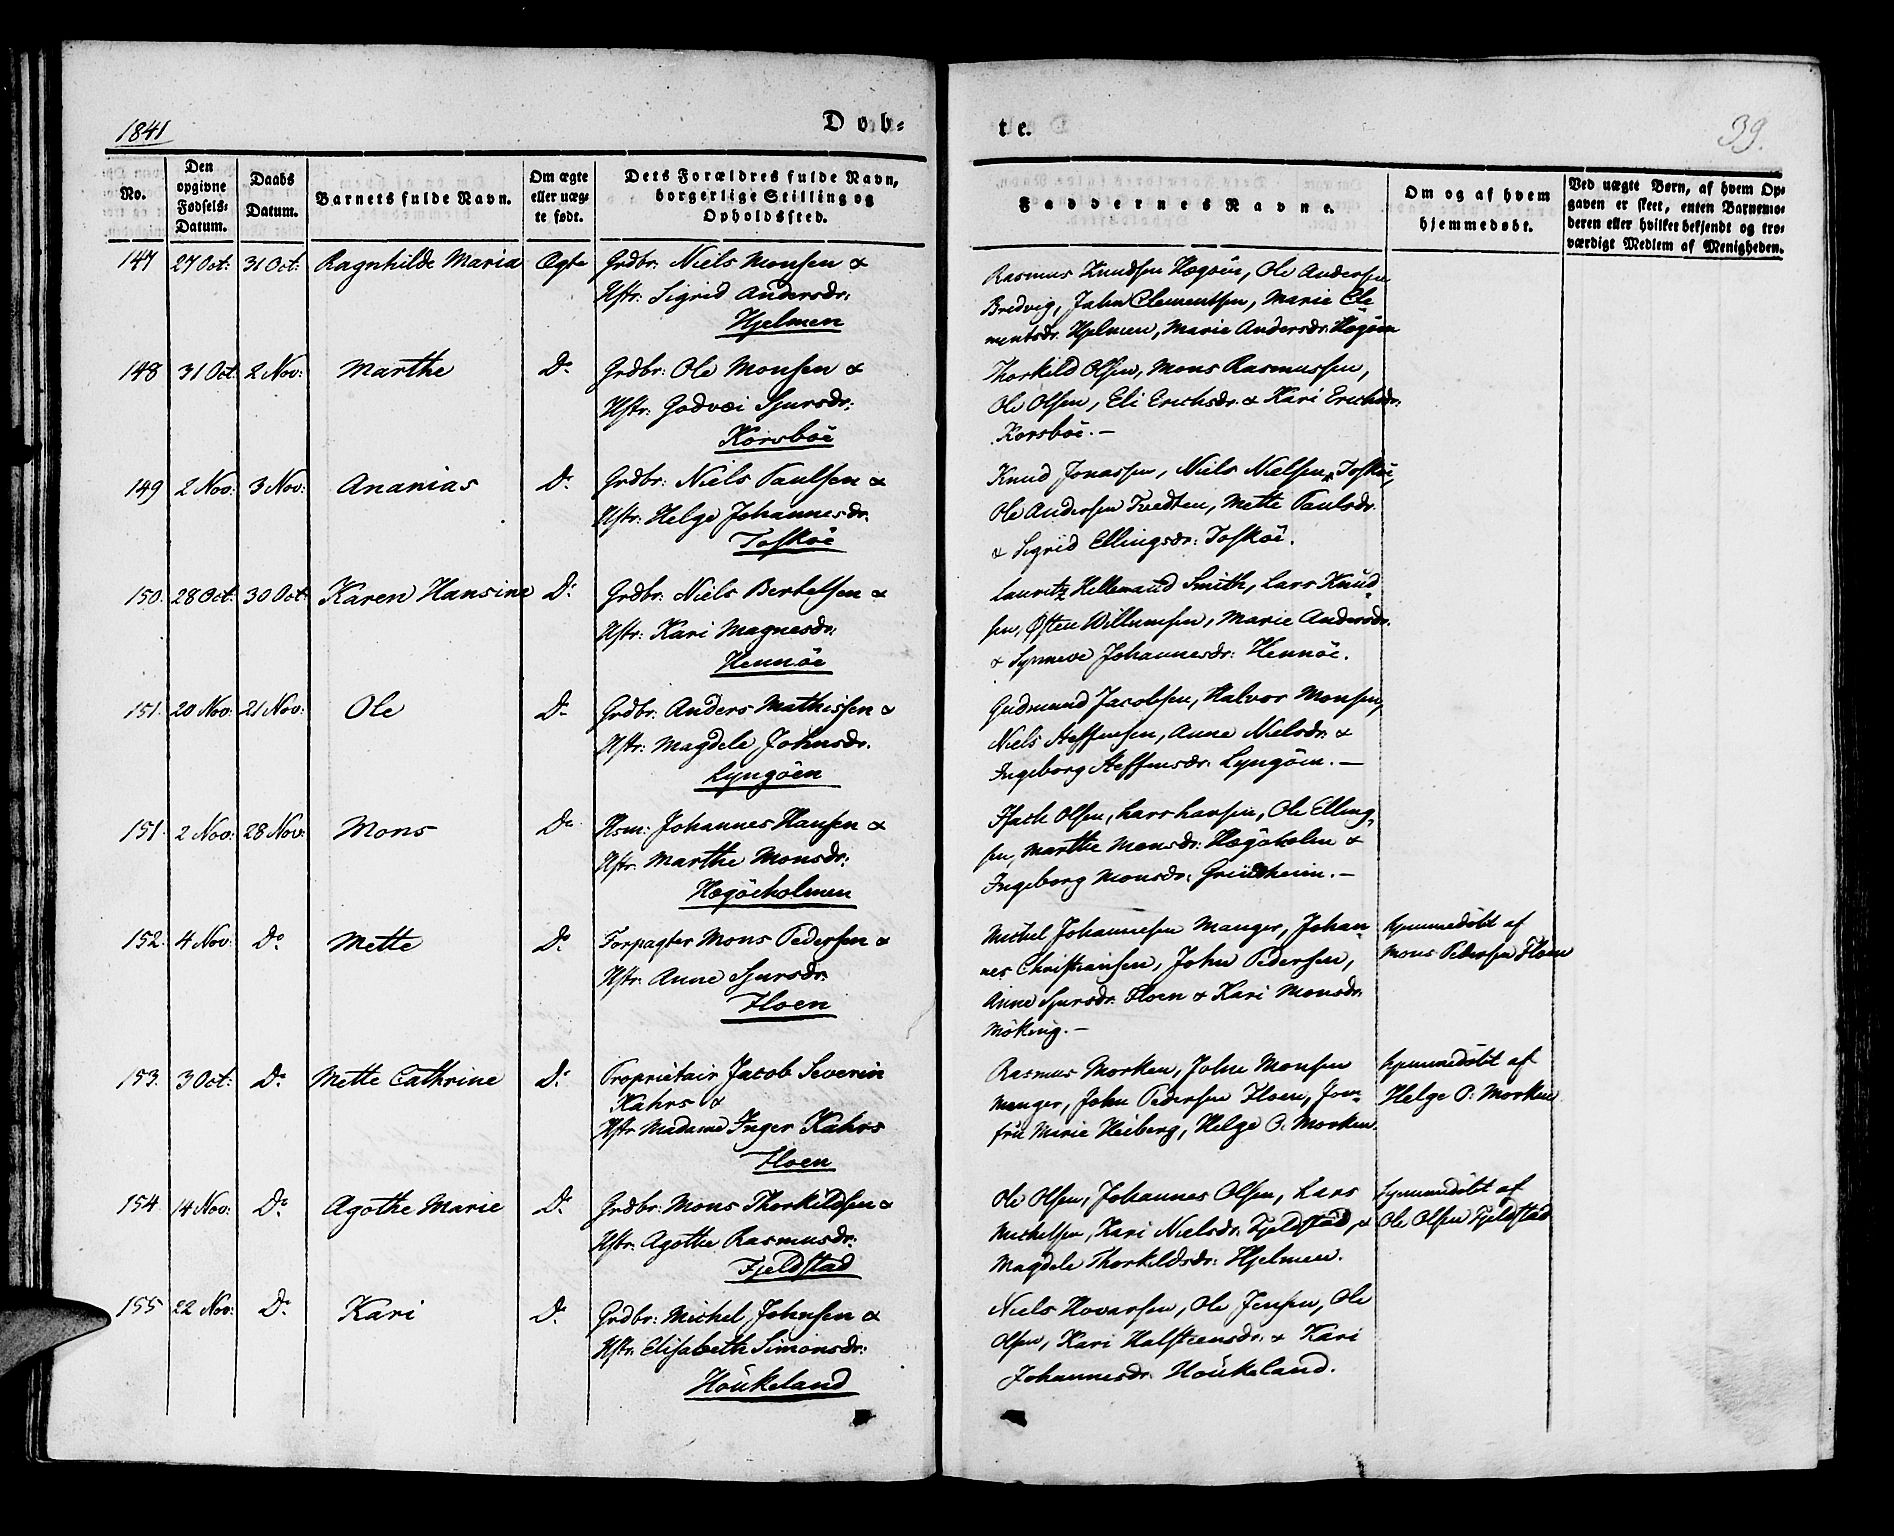 1841
Døb-
te.
39.
No.
Den opgivne Fødsels-Datum.
Daabs Datum.
Barnets fulde Navn.
Om ægte eller uægte født.
Dets Forældres fulde Navn, borgerlige Stilling og Opholdssted.
Faddernes Navne.
Om og af hvem hjemmedøbt.
Ved uægte Børn, af hvem Opgaven er skeet, enten Barnemoderen eller hvilket bekjendt og troværdigt Medlem af Menigheden.
147 27 Oct: 31 Oct: Ragnhilde Maria Ægte Grdbr: Niels Monsen &
Hstr: Sigrid Andersdr:
Hjelmen
Rasmus Knudsen Hægöen, Ole Andersen
Bredvig, John Clementsen, Marie Cle
mentsdr. Hjelmen, Marie Andersdr. Hægöen
148 31 Oct: 2 Nov: Marthe Do Grdbr: Ole Monsen &
Hstr: Godvæi Sjursdr:
Korsböe
Thorkild Olsen, Mons Rasmussen,
Ole Olsen, Eli Erichsdr. & Kari Erichsdr.
Korsböe.—
149 2 Nov: 3 Nov: Ananias Do Grdbr: Niels Paulsen &
Hstr: Helge Johannesdr.
Tosköe
Knud Jonassen, Niels Nielsen Tosköe,
Ole Andersen Tvedten, Mette Paulsdr.
& Sigrid Ellingsdr: Tosköe.
150. 28 Oct: 30 Oct: Karen Hansine Do Grdbr: Niels Bertelsen &
Hstr: Kari Magnesdr:
Hennöe
Lauritz Hellemand Smith, Lars Knud-
sen, Østen Willumsen, Marie Andersdr.
& Synneve Johannesdr: Hennöe.
151. 20 Nov: 21 Nov: Ole Do Grdbr: Anders Mathissen &
Hstr: Magdele Johnsdr.
Lyngöen
Gudmund Jacobsen, Halvor Monsen,
Niels Steffensen, Anne Nielsdr. &
Ingeborg Steffensdr. Lyngöen.—
151. 2 Nov: 28 Nov: Mons Do Hsm: Johannes Hansen &
Hstr: Marthe Monsdr:
Hægöeholmen
Isach Olsen, Lars Larsen, Ole Elling-
sen, Marthe Monsdr: Hægöholm &
Ingeborg Monsdr. Grindheim.—
152. 4 Nov: Do Mette Do Forpagter Mons Pedersen &
Hstr: Anne Sjursdr.
Floen
Michel Johannesen Manger, Johan-
nes Christiansen, John Pedersen,
Anne Sjursdr. Floen & Kari Monsdr.
Möking.—
hjemmedöbt af
Mons Pedersen Floen
153. 3 Oct: Do Mette Cathrine Do Proprietair Jacob Severin
Kahrs &
Hstr Madame Inger Kahrs
Floen
Rasmus Morken, John Monsen
Manger, John Pedersen Floen, Jom-
fru Marie Heiberg, Helge O. Morken.
hjemmedöbt af
Helge O: Morken
154 14 Nov: Do Agothe Marie Do Grdbr: Mons Thorkildsen &
Hstr: Agothe Rasmusdr:
Fjeldstad
Ole Olsen, Johannes Olsen, Lars
Michelsen, Kari Nielsdr. Fjeldstad &
Magdele Thorkildsdr: Hjelmen.
hjemmedöbt af
Ole Olsen Fjeldstad
155 22 Nov: Do Kari Do Grdbr: Michel Johnsen &
Hstr: Elisabeth Simonsdr:
Höukeland
Niels Hovarsen, Ole Jensen, Ole
Olsen, Kari Halsteensdr. & Kari
Johannesdr. Höukeland.